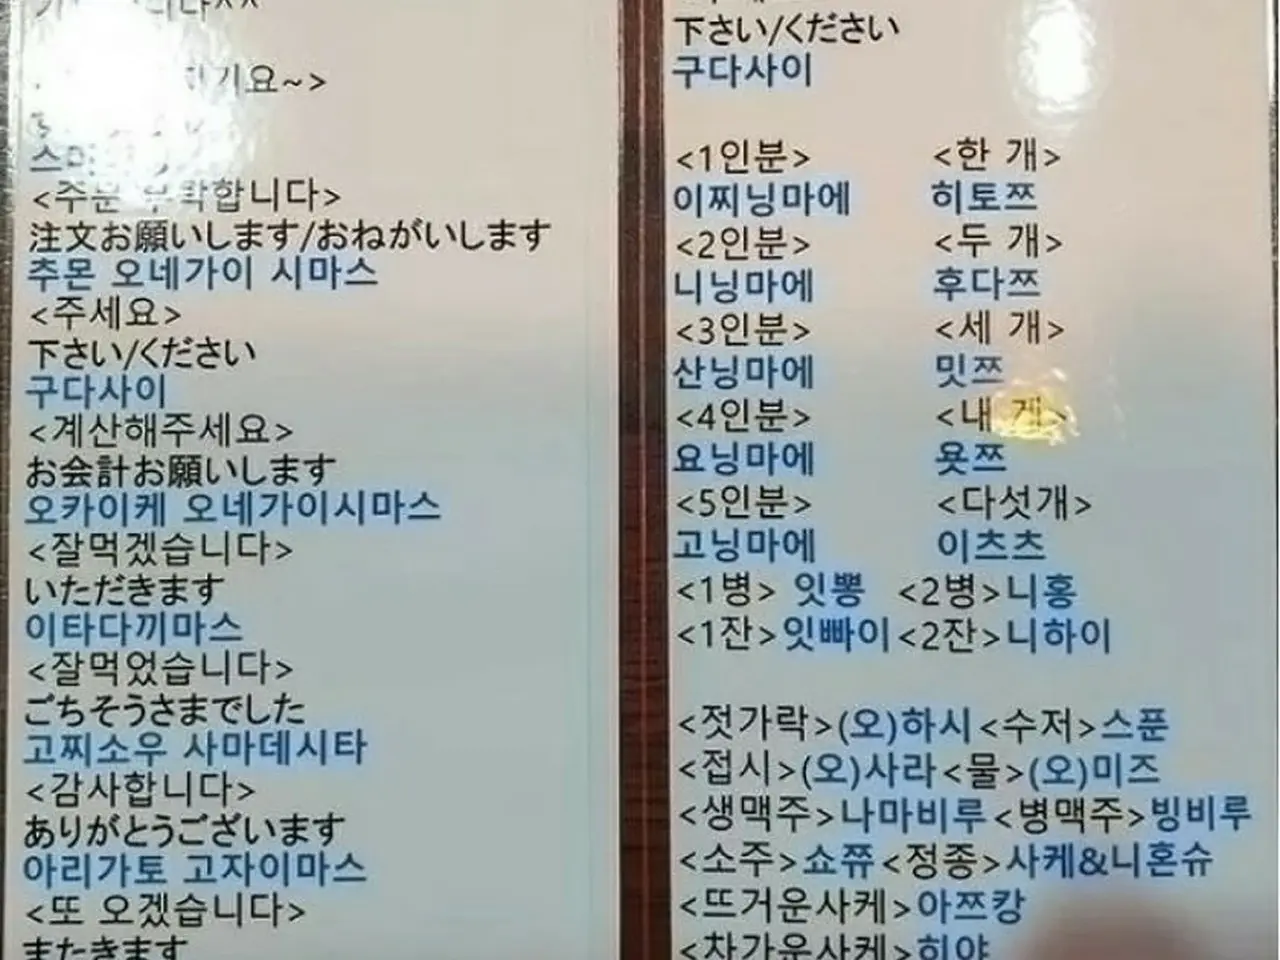 기요~>
<주문 부탁합니다>
注文お願いします/おねがいします
추몬 오네가이 시마스
<주세요>
下さい/ください
구다사이
<계산해주세요>
お会計お願いします
오카이케 오네가이시마스
<잘먹겠습니다>
いただきます
이타다끼마스
<잘먹었습니다>
ごちそうさまでした
고찌소우 사마데시타
<감사합니다>
ありがとうございます
아리가토 고자이마스
<또 오겠습니다>
またきます
下さい/ください
구다사이
<1인분> <한 개>
이찌닝마에 히토쯔
<2인분> <두 개>
니닝마에 후다쯔
<3인분> <세 개>
산닝마에 밋쯔
<4인분> <내 게>
요닝마에 욧쯔
<5인분> <다섯개>
고닝마에 이츠츠
<1병> 잇뽕 <2병>니홍
<1잔>잇빠이<2잔>니하이
<젓가락>(오)하시<수저>스푼
<접시>(오)사라<물>(오)미즈
<생맥주>나마비루<병맥주>빙비루
<소주>쇼쮸<정종>사케&니혼슈
<뜨거운사케>아쯔캉
<차가운사케>히야